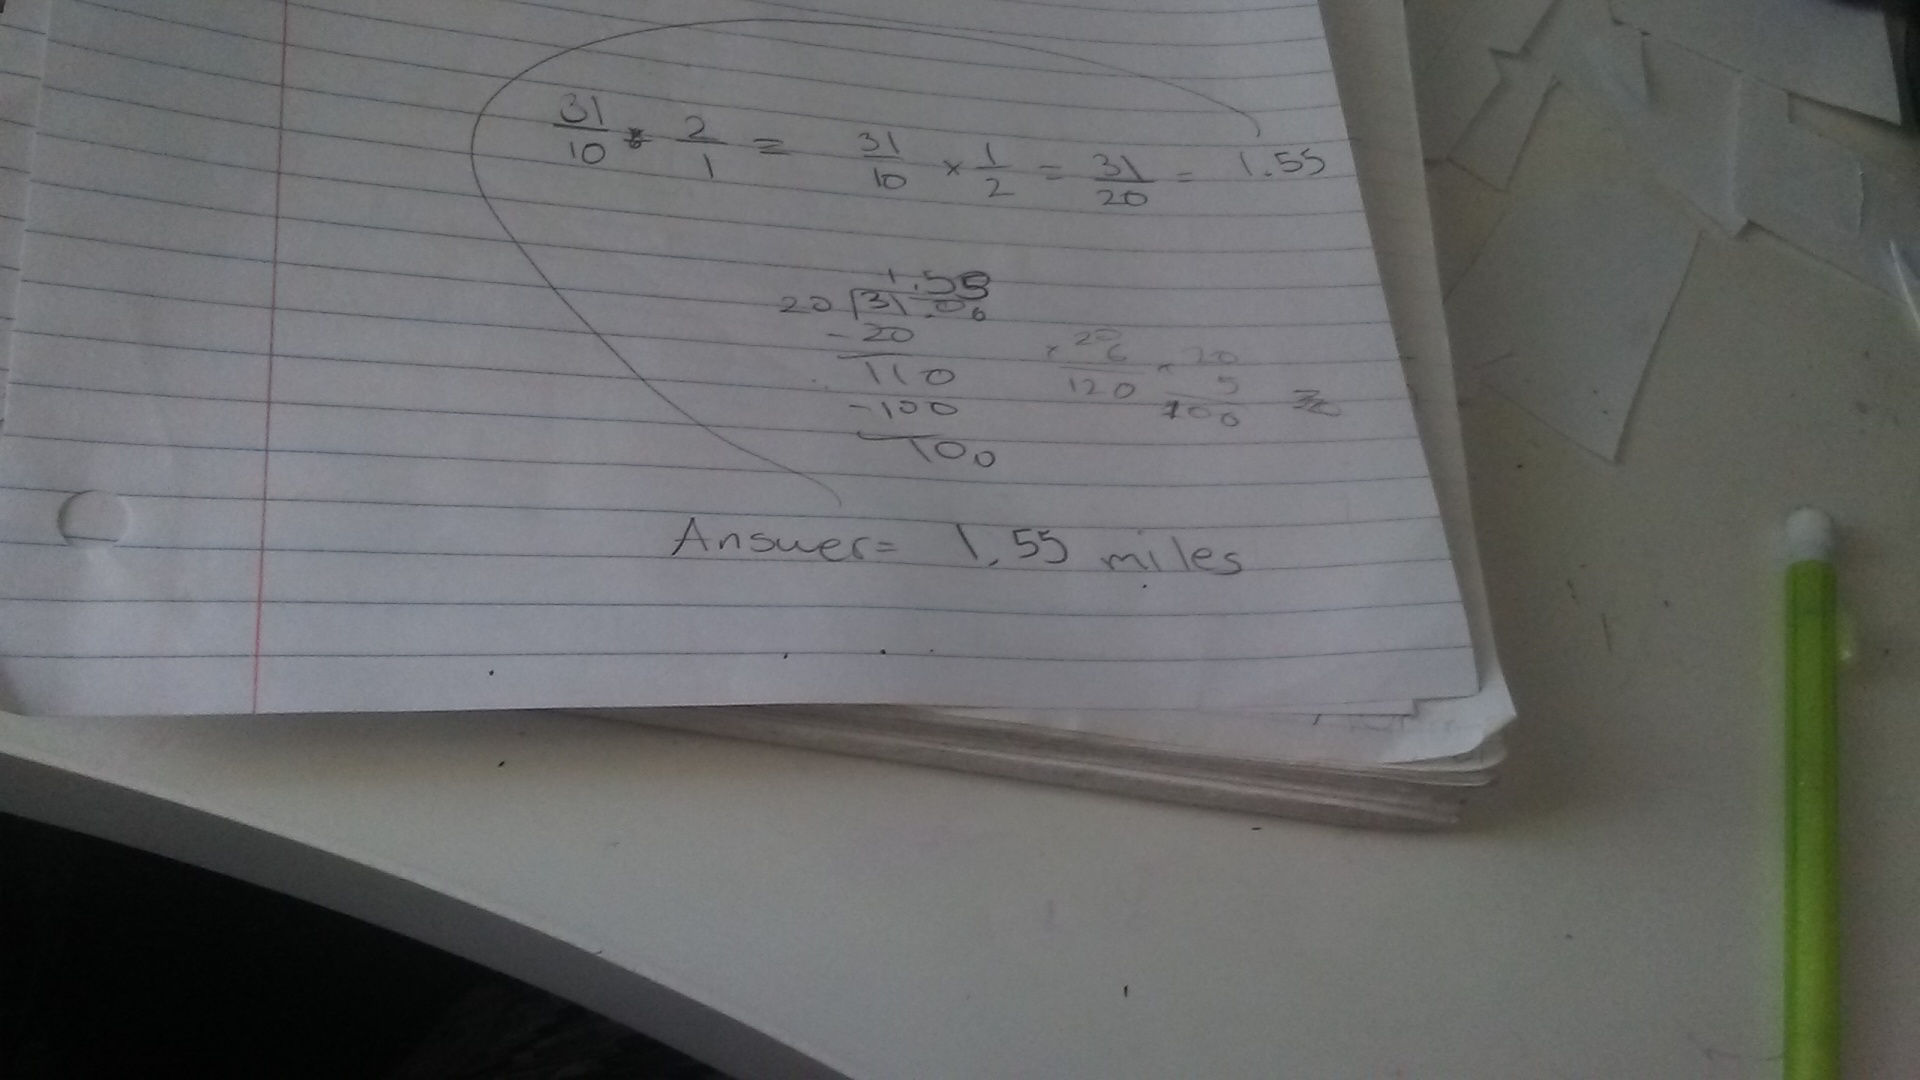 31/10 ÷ 2/1 = 31/10 × 1/2 = 31/20 = 1.55
1.55
20 31.00
- 20
110
- 100
100
× 20
6
120
× 20
5
100
Answer= 1.55 miles